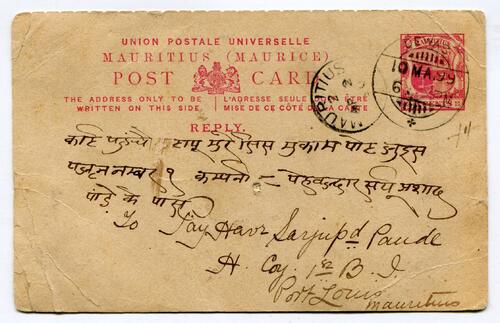 UNION POSTALE UNIVERSELLE
MAURITIUS (MAURICE)
POST CARD
THE ADDRESS ONLY TO BE WRITTEN ON THIS SIDE.
L'ADRESSE SEULE ÊTRE MISE DE CE CÔTÉ DE LA
REPLY.
MAURITIUS
10 MA 99
कार्ड पहुंचे टापु मुकाम पोर्ट लुइस
पलटन नम्बर १ कम्पनी
पांडे के पास
To Havr Sarjupd Pande
H. Coy. 1st B. I
Port Louis
Mauritius